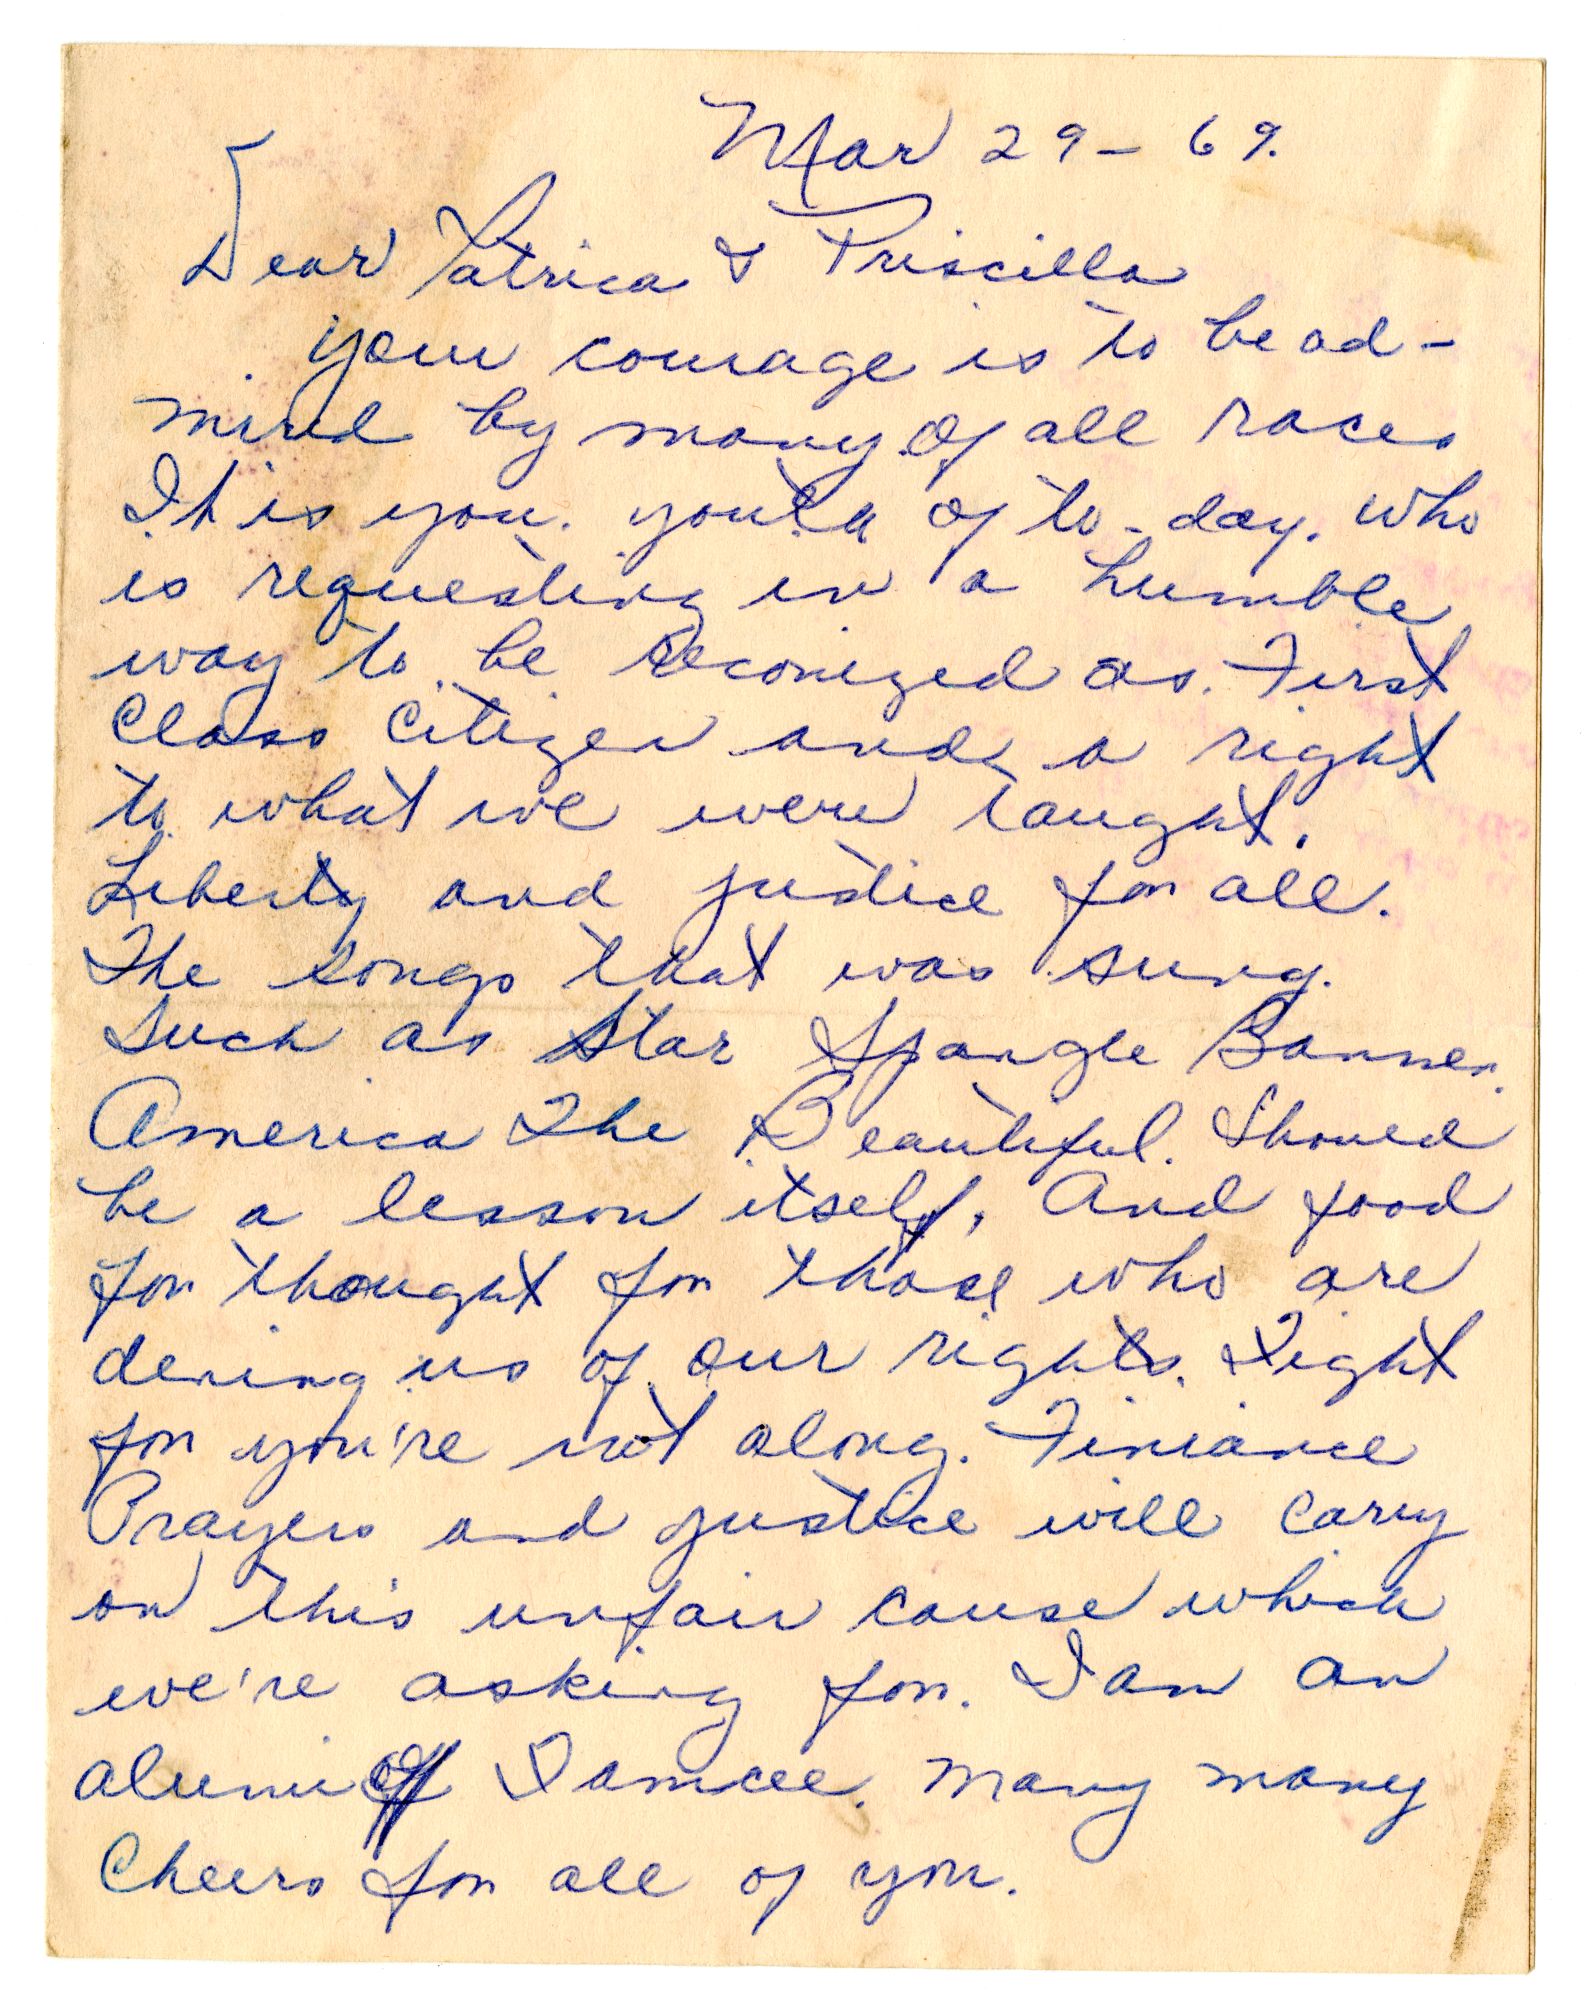 Mar 29 - 69.
Dear Patrica & Priscilla
your courage is to be ad-
mired by many of all races
It is you. youth of to-day. Who
is requesting in a humble
way to be reconized as. First
Class Citizen and a right
to what we were taught.
Liberty and justice for all.
The songs that was sung.
Such as Star Spangle Banner.
America The Beautiful. Shoued
be a lesson itself, And food
for thought for those who are
dening us of our rights. Fight
for you're not along. Finiance
Prayers and justice will carry
on this unfair cause which
we're asking for. I am an
alumi of Famcee. Many many
Cheers for all of you.